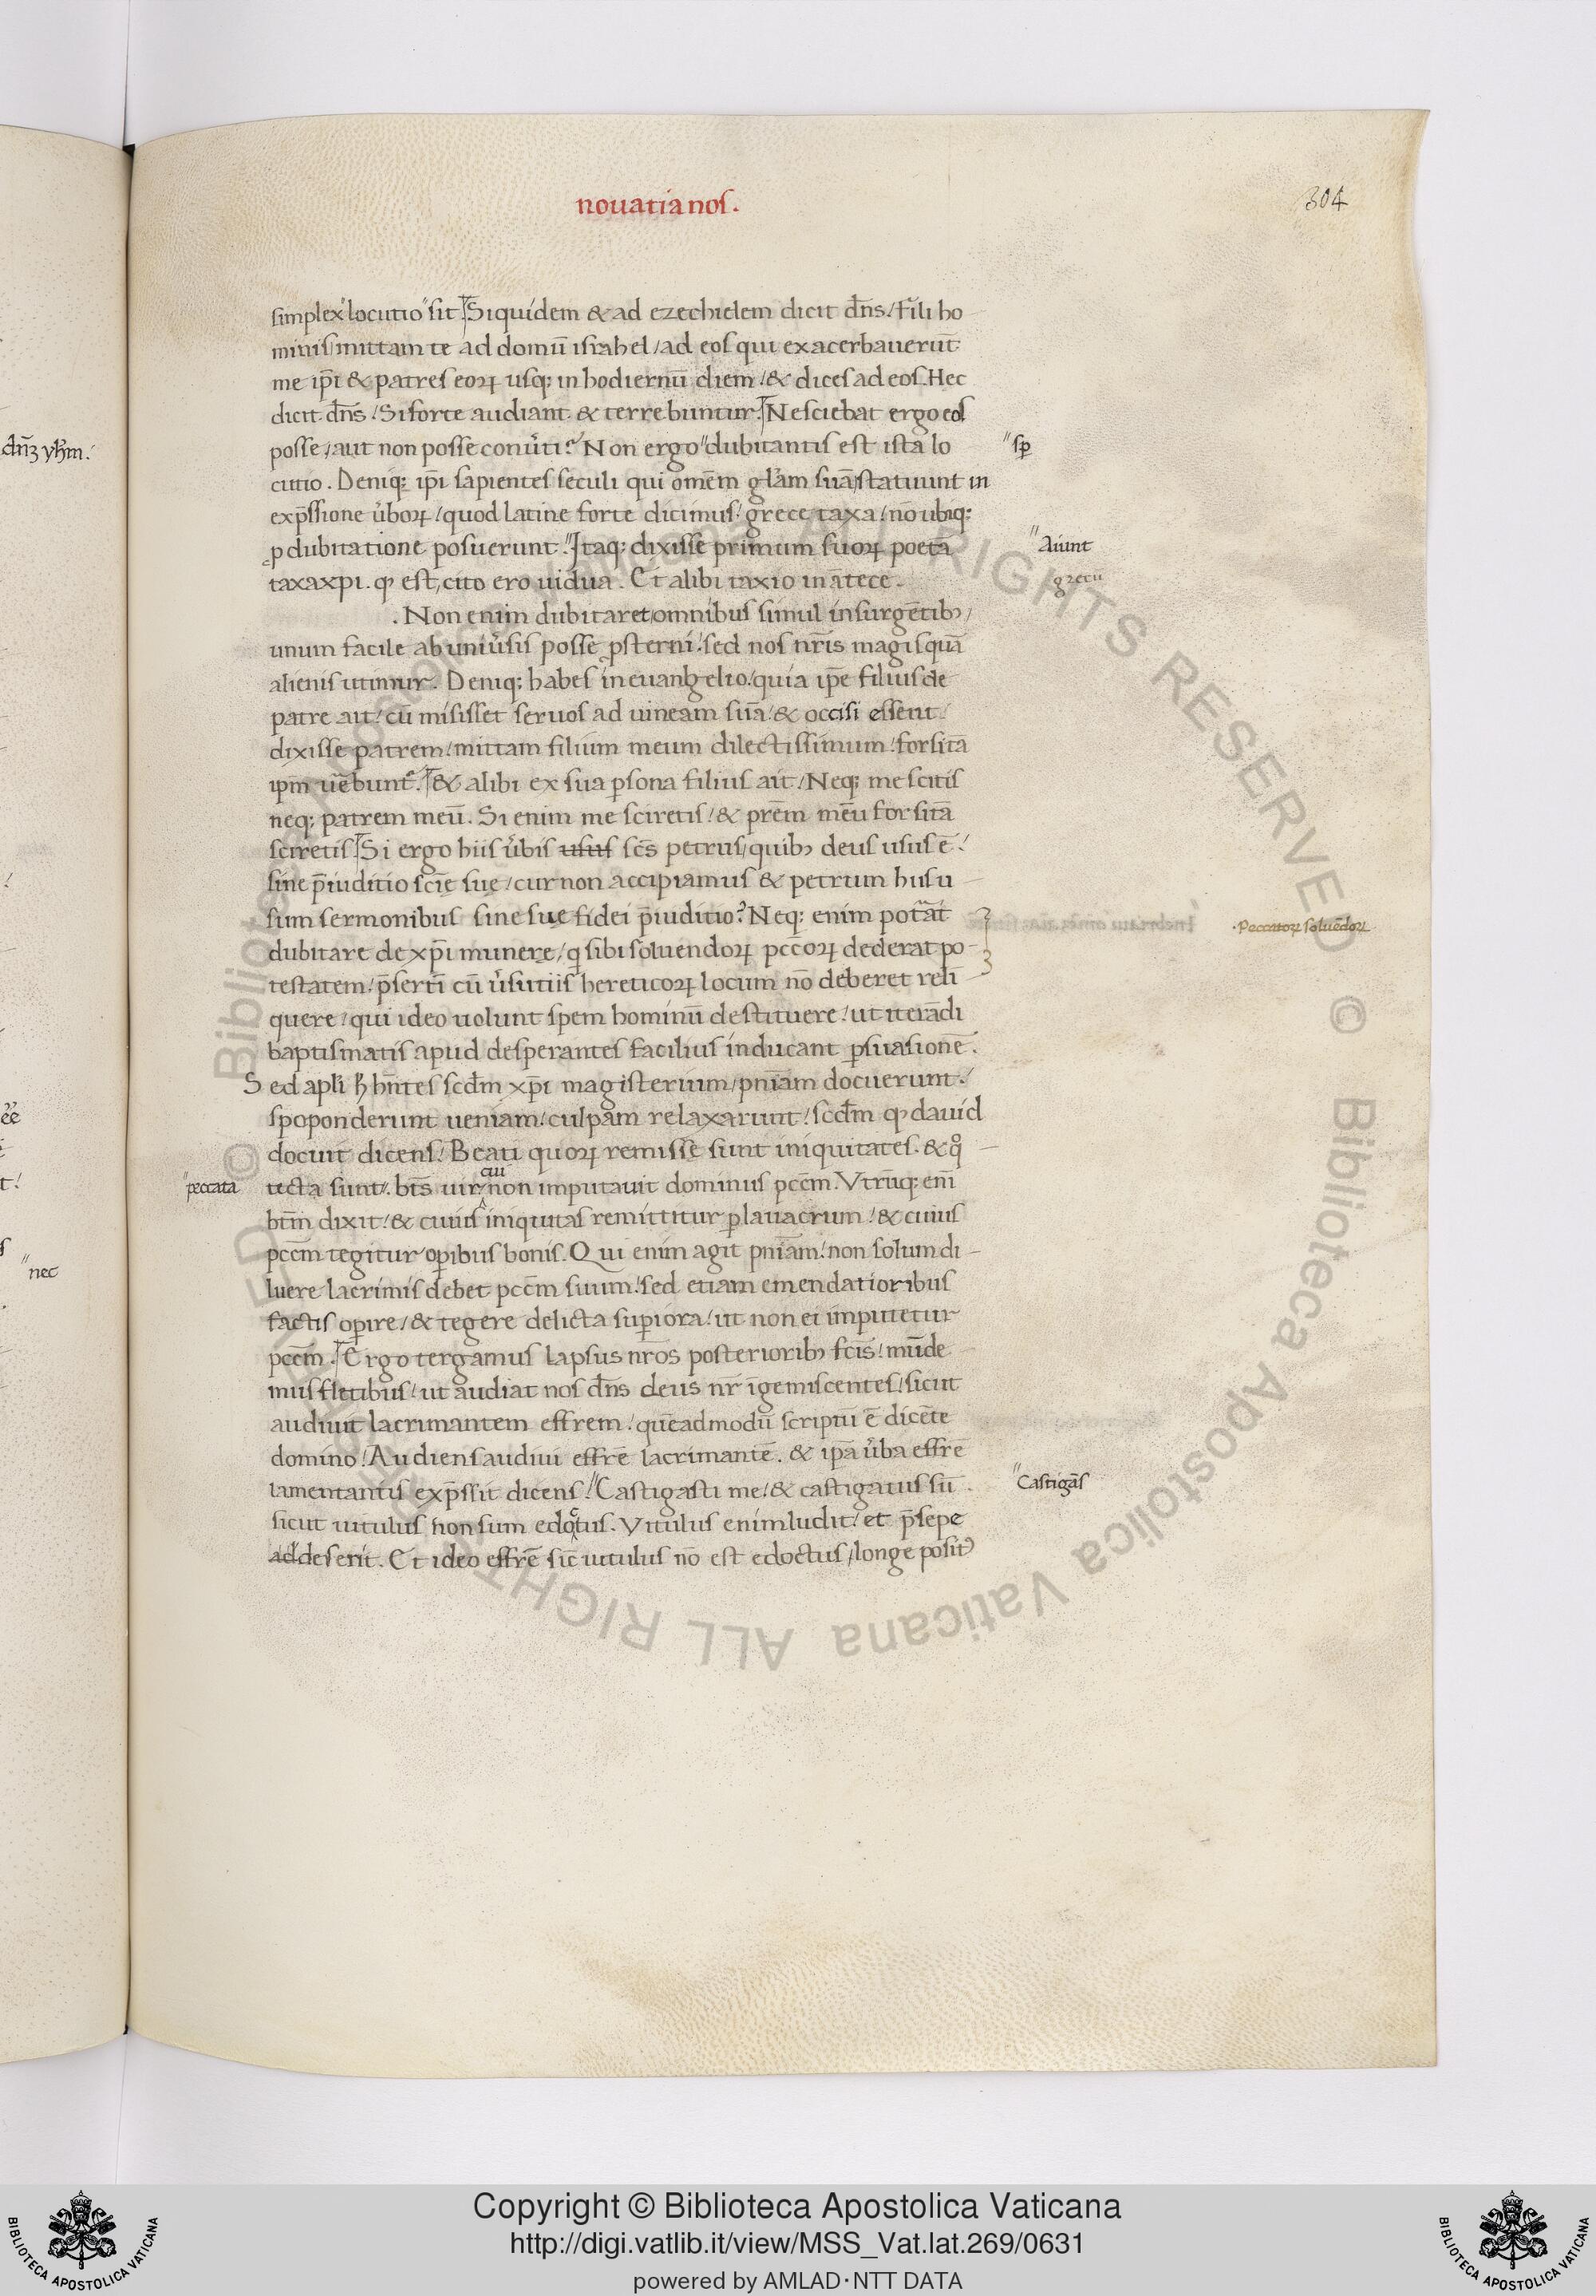 nouatianos.
304
simplex locutio sit. Siquidem & ad ezechielem dicit dn̄s / fili ho
minis / mittam te ad domū israhel / ad eos qui exacerbauerūt
me ip̄i & patres eoꝝ usq; in hodiernū diem / & dices ad eos. Hec
dicit dn̄s / Si forte audiant & terrebuntur. Nesciebat ergo eos
posse / aut non posse conuͥti? Non ergo dubitantis est ista lo
"sꝑ
cutio. Deniq; ip̄i sapientes seculi qui omēm gl̄am suā statuunt in
exp̄ssione uͥboꝝ / quod latine forte dicimus / grece taxa / nō ubiq;
ꝓ dubitatione posuerunt. "Itaq; dixisse primum suoꝝ poetā
"Aiunt
taxaxpi. ꝙ est, cito ero uidua. Et alibi taxio in ātece.
grecū
. Non enim dubitaret / omnibus simul insurgētibꝫ /
unum facile ab uniuͥsis posse ꝓsterni / sed nos nr̄is magis quā
alienis utimur. Deniq; habes in euanhgelio / quia ip̄e filius de
patre ait / cū misisset seruos ad uineam suā / & occisi essent /
dixisse patrem / mittam filium meum dilectissimum / forsitā
ip̄m uēbunt̄. & alibi ex sua ꝑsona filius ait / Neq; me scitis
neq; patrem meū. Si enim me sciretis / & prēm mēu forsitā
sciretis. Si ergo hiis uͥbis usus scs̄ petrus / quibꝫ deus usus ē /
sine p̄iuditio scię̄ sue̜ / cur non accipiamus & petrum hisu
sum sermonibus sine sue̜ fidei p̄iuditio? Neq; enim potāt
dubitare de xp̄i munere / q sibi soluendoꝝ pcc̄oꝝ dederat po-
.Peccatoꝝ soluēdoꝝ
testatem / p̄sertī cū uͥsutiis hereticoꝝ locum nō deberet relī
quere / qui ideo uolunt spem hominū destituere / ut iterādi
baptismatis apud desperantes facilius inducant ꝑsuasionē.
Sed apl̄i ħ hn̄tes scdm̄ xp̄i magisterium / pniam̄ docuerunt /
spoponderunt ueniam / culpam relaxarunt / scdm̄ ꝙ dauid
docuit dicens / Beati quoꝝ remisse sunt iniquitates. & qͦ
tecta sunt. bt̄s uir cui non imputauit dominus pcc̄m. Vtrūq; enī
"peccata
btm̄ dixit / & cuius iniquitas remittitur ꝑ lauacrum / & cuius
pcc̄m tegitur oꝑibus bonis. Qui enim agit pniam̄ / non solum di-
luere lacrimis debet pcc̄m suum / sed etiam emendatioribus
factis oꝑire / & tegere delicta suꝑiora / ut non ei imputetur
pcc̄m. Ergo tergamus lapsus nr̄os posterioribꝫ fcīs / mūde
mus fletibus / ut audiat nos dn̄s deus nr̄ īgemiscentes / sicut
audiuit lacrimantem effrem / quēadmodū scriptū ē dicēte
domino / Audiens audiui effrē lacrimantē. & ip̄a uͥba effrē
lamentantis exp̄ssit dicens / "Castigasti me / & castigatus sū.
"Castigās
sicut uitulus non sum edoctus. Vitulus enim ludit / et p̄sepe
addeserit. Et ideo effrē sic̄ uitulus nō est edoctus / longe positꝰ
dn̄ꝫ yħm.
"nec
Copyright © Biblioteca Apostolica Vaticana
http://digi.vatlib.it/view/MSS_Vat.lat.269/0631
powered by AMLAD·NTT DATA
BIBLIOTECA APOSTOLICA VATICANA
BIBLIOTECA APOSTOLICA VATICANA
© Biblioteca Apostolica Vaticana ALL RIGHTS RESERVED
© Biblioteca Apostolica Vaticana ALL RIGHTS RESERVED